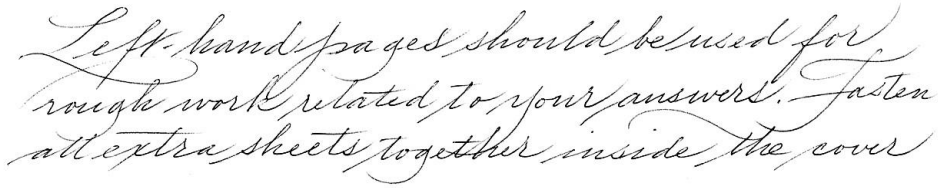 Left-hand pages should be used for
rough work related to your answers. Fasten
all extra sheets together inside the cover